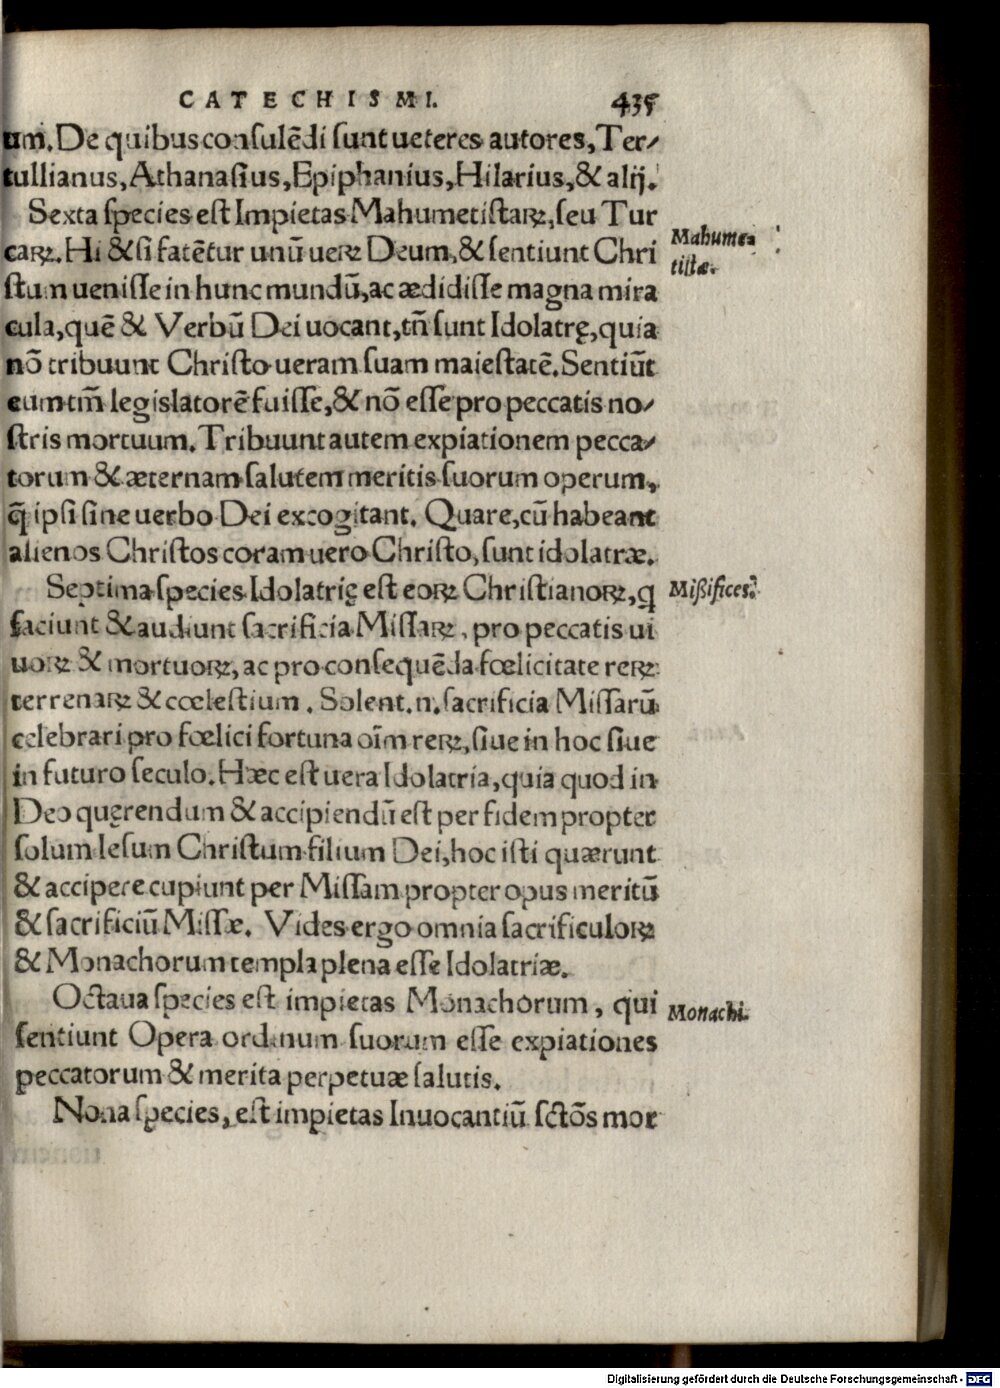 CATECHISMI. 435
um. De quibus consulēdi sunt ueteres autores, Ter-
tullianus, Athanasius, Epiphanius, Hilarius, & alij.
Sexta species est Impietas Mahumetistaꝝ, seu Tur
caꝝ. Hi & si fatētur unū ueꝝ Deum, & sentiunt Chri
stum uenisse in hunc mundū, ac ædidisse magna mira
cula, quē & Verbū Dei uocant, tñ sunt Idolatrę, quia
nō tribuunt Christo ueram suam maiestatē. Sentiūt
eum tm̄ legislatorē fuisse, & nō esse pro peccatis no-
stris mortuum. Tribuunt autem expiationem pecca-
torum & æternam salutem meritis suorum operum,
q̄ ipsi sine uerbo Dei excogitant. Quare, cū habeant
alienos Christos coram uero Christo, sunt idolatræ.
Mahume-
tistæ.
Septima species Idolatrię est eoꝝ Christianoꝝ, q
faciunt & audiunt sacrificia Missaꝝ, pro peccatis ui
uoꝝ & mortuoꝝ, ac pro consequēda fœlicitate reꝝ
terrenaꝝ & cœlestium. Solent .n. sacrificia Missarū
celebrari pro fœlici fortuna oīm reꝝ, siue in hoc siue
in futuro seculo. Hæc est uera Idolatria, quia quod in
Deo quęrendum & accipiendū est per fidem propter
solum Iesum Christum filium Dei, hoc isti quærunt
& accipere cupiunt per Missam propter opus meritū
& sacrificiū Missæ. Vides ergo omnia sacrificuloꝝ
& Monachorum templa plena esse Idolatriæ.
Mißifices.
Octaua species est impietas Monachorum, qui
sentiunt Opera ordinum suorum esse expiationes
peccatorum & merita perpetuæ salutis.
Monachi.
Nona species, est impietas Inuocantiū sctōs mor
Digitalisierung gefördert durch die Deutsche Forschungsgemeinschaft - DFG